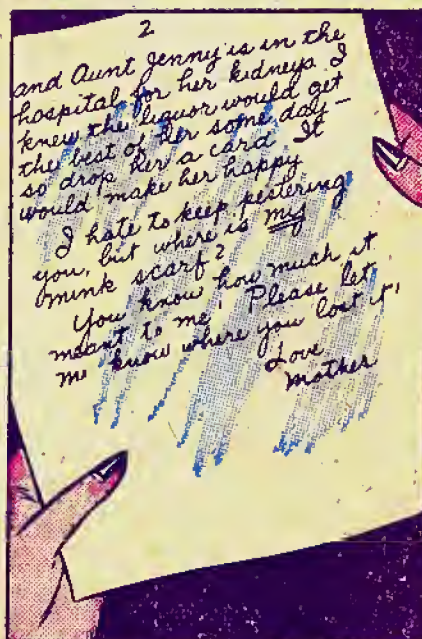 2
and Aunt Jenny is in the
hospital for her kidneys. I
knew the liquor would get
the best of her some day—
so drop her a card. It
would make her happy
I hate to keep pestering
you, but where is my
mink scarf?
You know how much it
meant to me! Please let
me know where you lost it!
Love
Mother